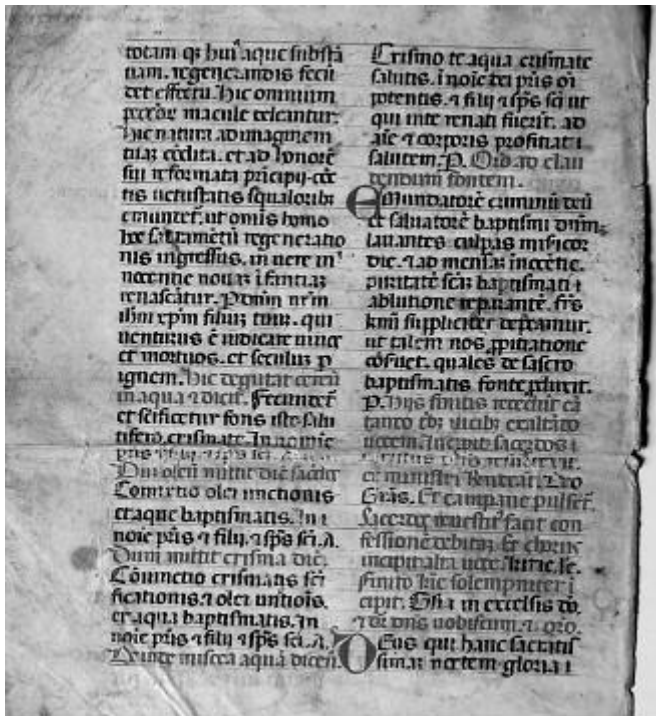 totam q; hui' aque substā
tiam. regenerandis fecū
det effectu. Hic omnium
peccōr macule deleantur.
hic natura ad imaginem
tuaz cōdita. et ad honorē
sui reformata p̄ncipij. cūc
tis uetustatis squaloribʒ
emundet͛. ut omīs homo
hoc sacr̄ametū regeneratio
nis ingressus. in uere in
nocentie nouaz īfantiaz
renascātur. P dn̄m nr̄m
ih̄m xp̄m filiuz tuuz. qui
uenturus ē iudicare uiuos
et mortuos. et seculuz p
ignem. hic degutat cereū
in aqua ⁊ dicit. Fecundet͛
et sc̄ificetur fons iste salu
tifero. crismate. In nomīe
pr̄is et filij ⁊ sp̄s sc̄i. A.
Dum oleū mittit dic̄ sac̄dos
Comixtio olei unctionis
et aque baptismatis. In ī
noīe pr̄is ⁊ filij ⁊ sp̄s sc̄i. A.
Dum mittit crisma dic̄.
Cōiunctio crismatis sc̄i
ficationis. ⁊ olei untiōis.
et aqua baptismatis. In
noīe pr̄is ⁊ filij ⁊ sp̄s sc̄i. A.
Deinde miscea aquā dicen̄.
Crismo te aqua crismate
salutis. ī noīe dei pr̄is oī
potentis. ⁊ filij ⁊ sp̄s sc̄i ut
qui in te renati fuerīt. ad
aīe ⁊ corporis profitiat ī
salutem. P. Oīd ad clau
dendum fontem.
EMundatorē criminū deū
et saluatorē baptismi dn̄m;
lauantes culpas mīsicor
die. ⁊ ad mensaz īnocētie.
puritatē sc̄az baptismati ī
ablutione reparantē. fr̄s
km̄i suppliciter dep̄camur.
ut talem nos p̄pitiatione
cōseruet. quales de sacro
baptismatis fonte p̄duxit.
P. Hijs finitis
uocem.
et ministri Deo
Gr̄as. Et campane pulset͛.
Sacerdos reuestit' facit con
fessionē debitaz. Et chorus
incipit alta uoce. Kirie. le.
finito kīe solempniter ī
cipit. Gl̄ia in excelsis dō.
⁊ dē dn̄s uobiscum. ⁊. oro.
DEus qui hanc sacratis
simaz noctem gloria ī